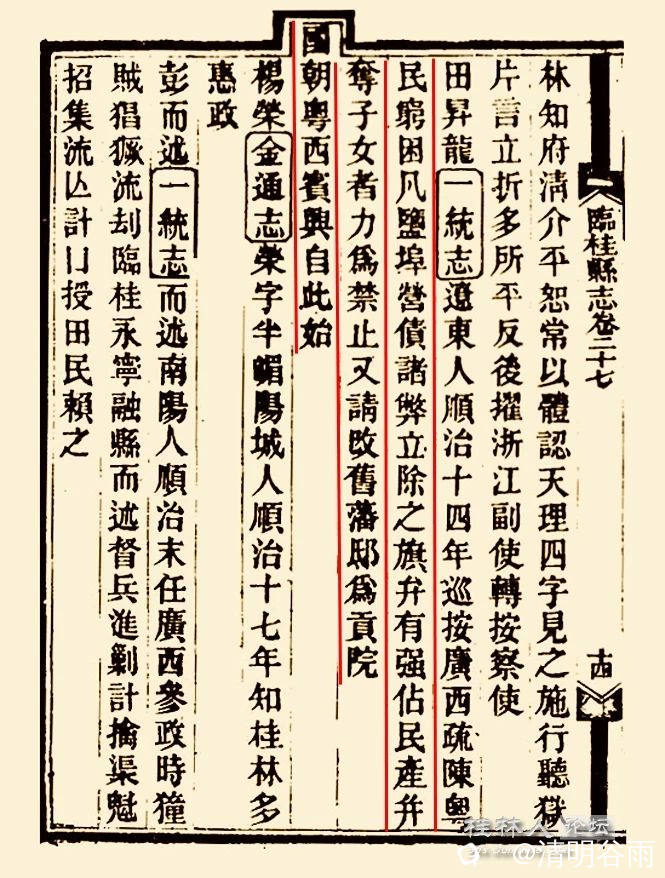 臨桂縣志卷二十七
十四
林知府清介平恕常以體認天理四字見之施行聽獄
片言立折多所平反後擢浙江副使轉按察使
田昇龍一統志遼東人順治十四年巡按廣西疏陳粵
民窮困凡鹽埠營債諸弊立除之旗弁有强佔民產幷
奪子女者力爲禁止又請改舊藩邸爲貢院
國朝粵西賓興自此始
楊榮金通志榮字半嵋陽城人順治十七年知桂林多
惠政
彭而述一統志而述南陽人順治末任廣西參政時獞
賊猖獗流刦臨桂永寧融縣而述督兵進剿計擒渠魁
招集流亾計口授田民賴之
桂林人论坛
@清明谷雨